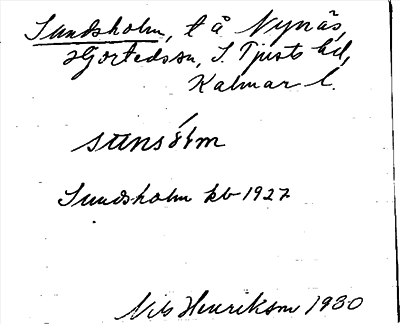 Sundsholm, t å Nynäs,
Hjortedssn, S. Tjusts hd,
Kalmar l.
Sundsholm kb 1927
Nils Henriksson 1930